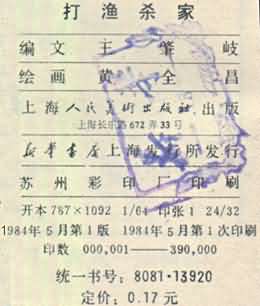 打渔杀家
编文王肇岐
绘画黄全昌
上海人民美术出版社出版
上海长乐路672弄33号
新华书店上海发行所发行
苏州彩印厂印刷
开本787×1092 1/64 印张1 24/32
1984年5月第1版 1984年5月第1次印刷
印数 000,001——390,000
统一书号：8081·13920
定价：0.17元